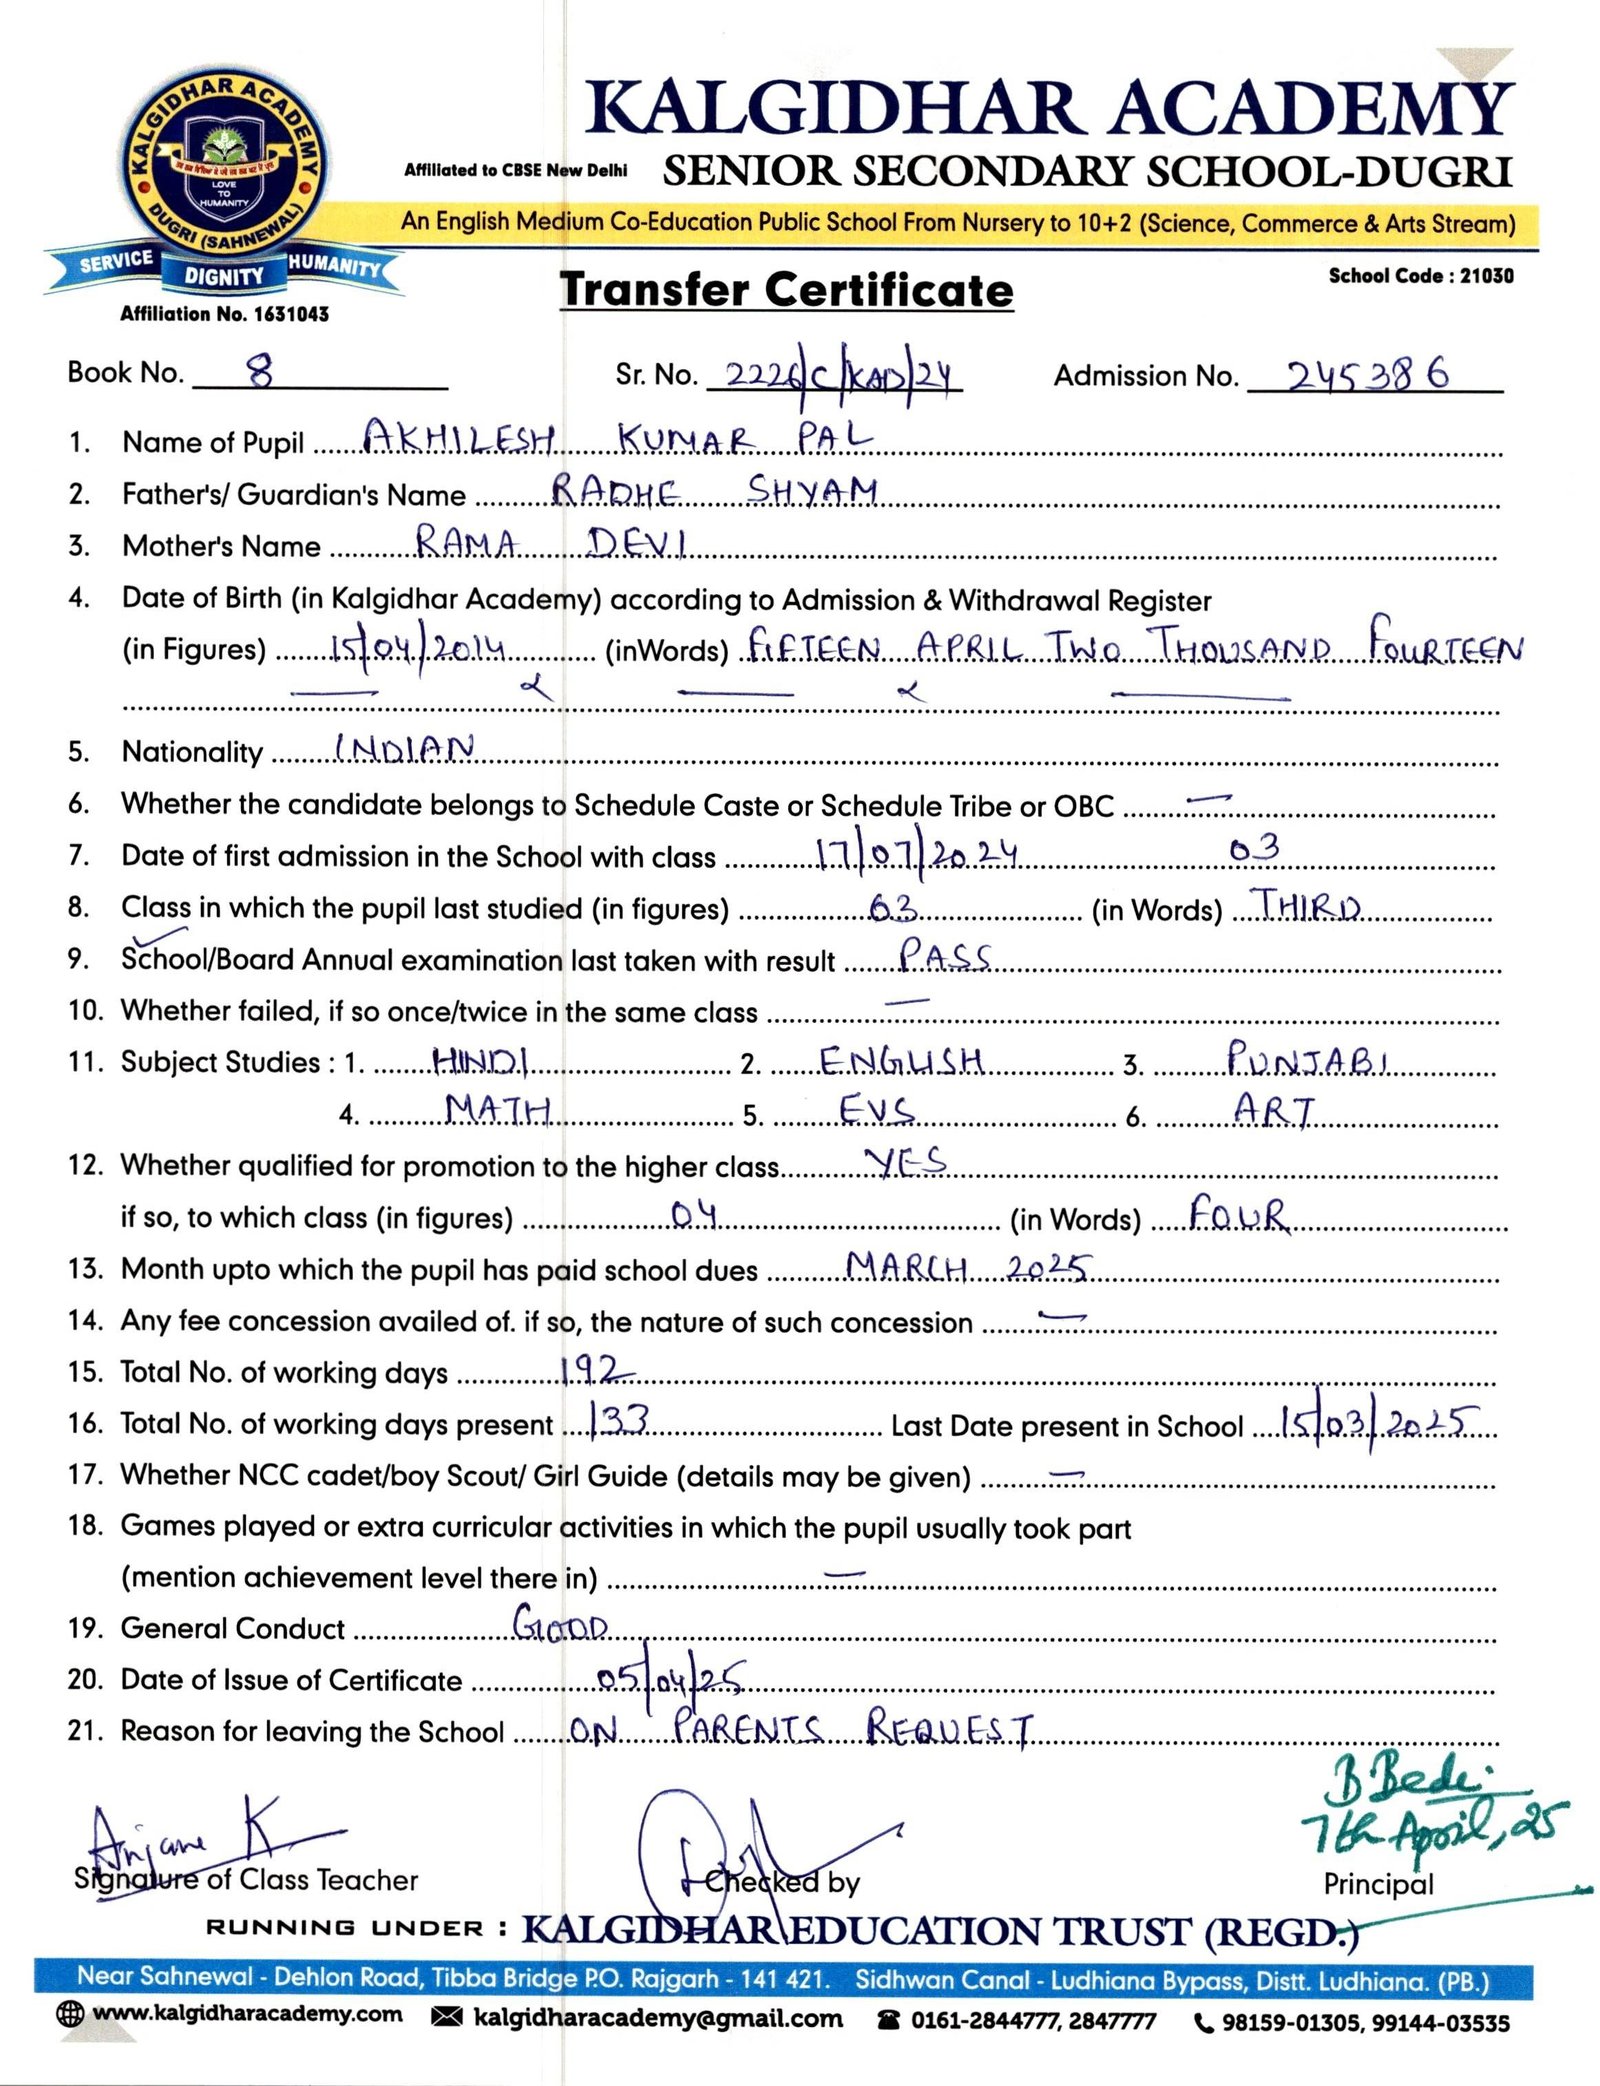 KALGIDHAR ACADEMY
DUGRI (SAHNEWAL)
LOVE
TO
HUMANITY
SERVICE DIGNITY HUMANITY
Affiliation No. 1631043
KALGIDHAR ACADEMY
Affiliated to CBSE New Delhi SENIOR SECONDARY SCHOOL-DUGRI
An English Medium Co-Education Public School From Nursery to 10+2 (Science, Commerce & Arts Stream)
School Code : 21030
Transfer Certificate
Book No. 8 Sr. No. 2226/C/KAD/24 Admission No. 245386
1. Name of Pupil AKHILESH KUMAR PAL
2. Father's/ Guardian's Name RADHE SHYAM
3. Mother's Name RAMA DEVI
4. Date of Birth (in Kalgidhar Academy) according to Admission & Withdrawal Register
(in Figures) 15/04/2014 (inWords) FIFTEEN APRIL TWO THOUSAND FOURTEEN
5. Nationality INDIAN
6. Whether the candidate belongs to Schedule Caste or Schedule Tribe or OBC —
7. Date of first admission in the School with class 17/07/2024 03
8. Class in which the pupil last studied (in figures) 03 (in Words) THIRD
9. School/Board Annual examination last taken with result PASS
10. Whether failed, if so once/twice in the same class —
11. Subject Studies : 1. HINDI 2. ENGLISH 3. PUNJABI
4. MATH 5. EVS 6. ART
12. Whether qualified for promotion to the higher class YES
if so, to which class (in figures) 04 (in Words) FOUR
13. Month upto which the pupil has paid school dues MARCH 2025
14. Any fee concession availed of. if so, the nature of such concession —
15. Total No. of working days 192
16. Total No. of working days present 133 Last Date present in School 15/03/2025
17. Whether NCC cadet/boy Scout/ Girl Guide (details may be given) —
18. Games played or extra curricular activities in which the pupil usually took part
(mention achievement level there in) —
19. General Conduct GOOD
20. Date of Issue of Certificate 05/04/25
21. Reason for leaving the School ON PARENTS REQUEST
B Bedi
7th April, 25
Anjane K
Signature of Class Teacher Checked by Principal
RUNNING UNDER : KALGIDHAR EDUCATION TRUST (REGD.)
Near Sahnewal - Dehlon Road, Tibba Bridge P.O. Rajgarh - 141 421. Sidhwan Canal - Ludhiana Bypass, Distt. Ludhiana. (PB.)
www.kalgidharacademy.com kalgidharacademy@gmail.com 0161-2844777, 2847777 98159-01305, 99144-03535